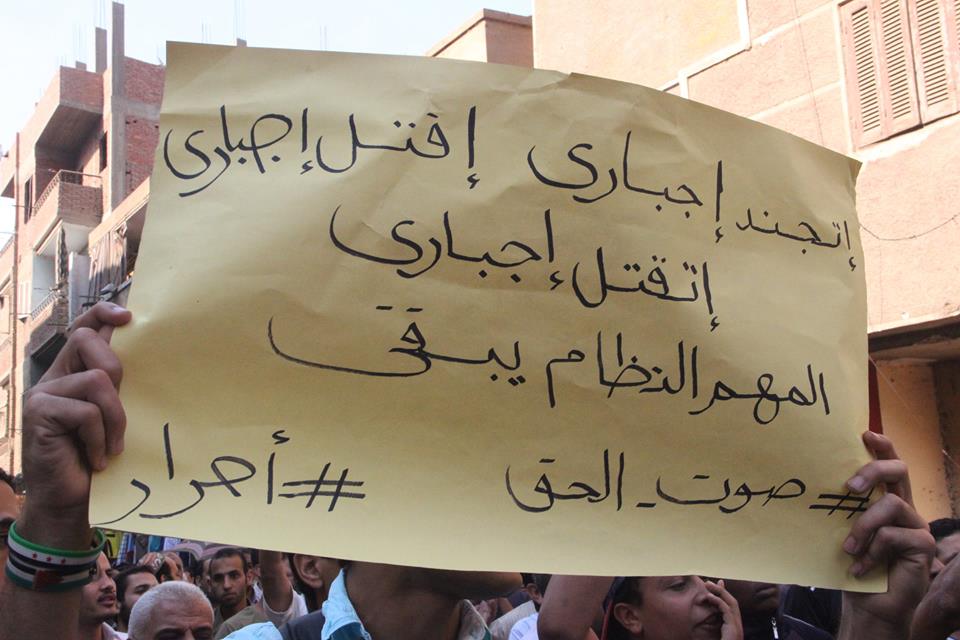 إتجند إجبارى إقتل إجبارى
إتقتل إجبارى
المهم النظام يبقى
#صوت_الحق #أحرار